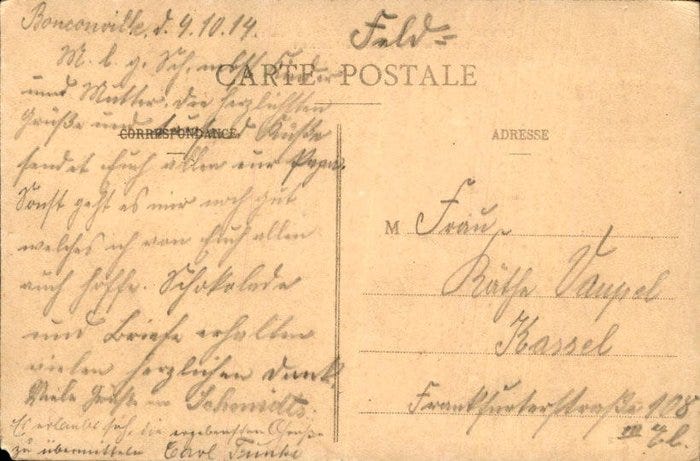 Bouconville, d. 9.10.14.
Feld=
M. l. g. Sch. nebst Kinder
CARTE POSTALE
und Mutter, die herzlichsten
Grüße und tausend Küsse
CORRESPONDANCE
sendet Euch allen eur Papa.
Sonst geht es mir noch gut
welches ich von Euch allen
auch hoffe. Schokolade
und Briefe erhalten
vielen herzlichen Dank
Viele Grüße an Schmidts.
Es erlaubt sich, die ergebensten Grüße
zu übermitteln Carl Funke
ADRESSE
M Frau
Käthe Vaupel
Kassel
Frankfurterstraße 108
III Et.